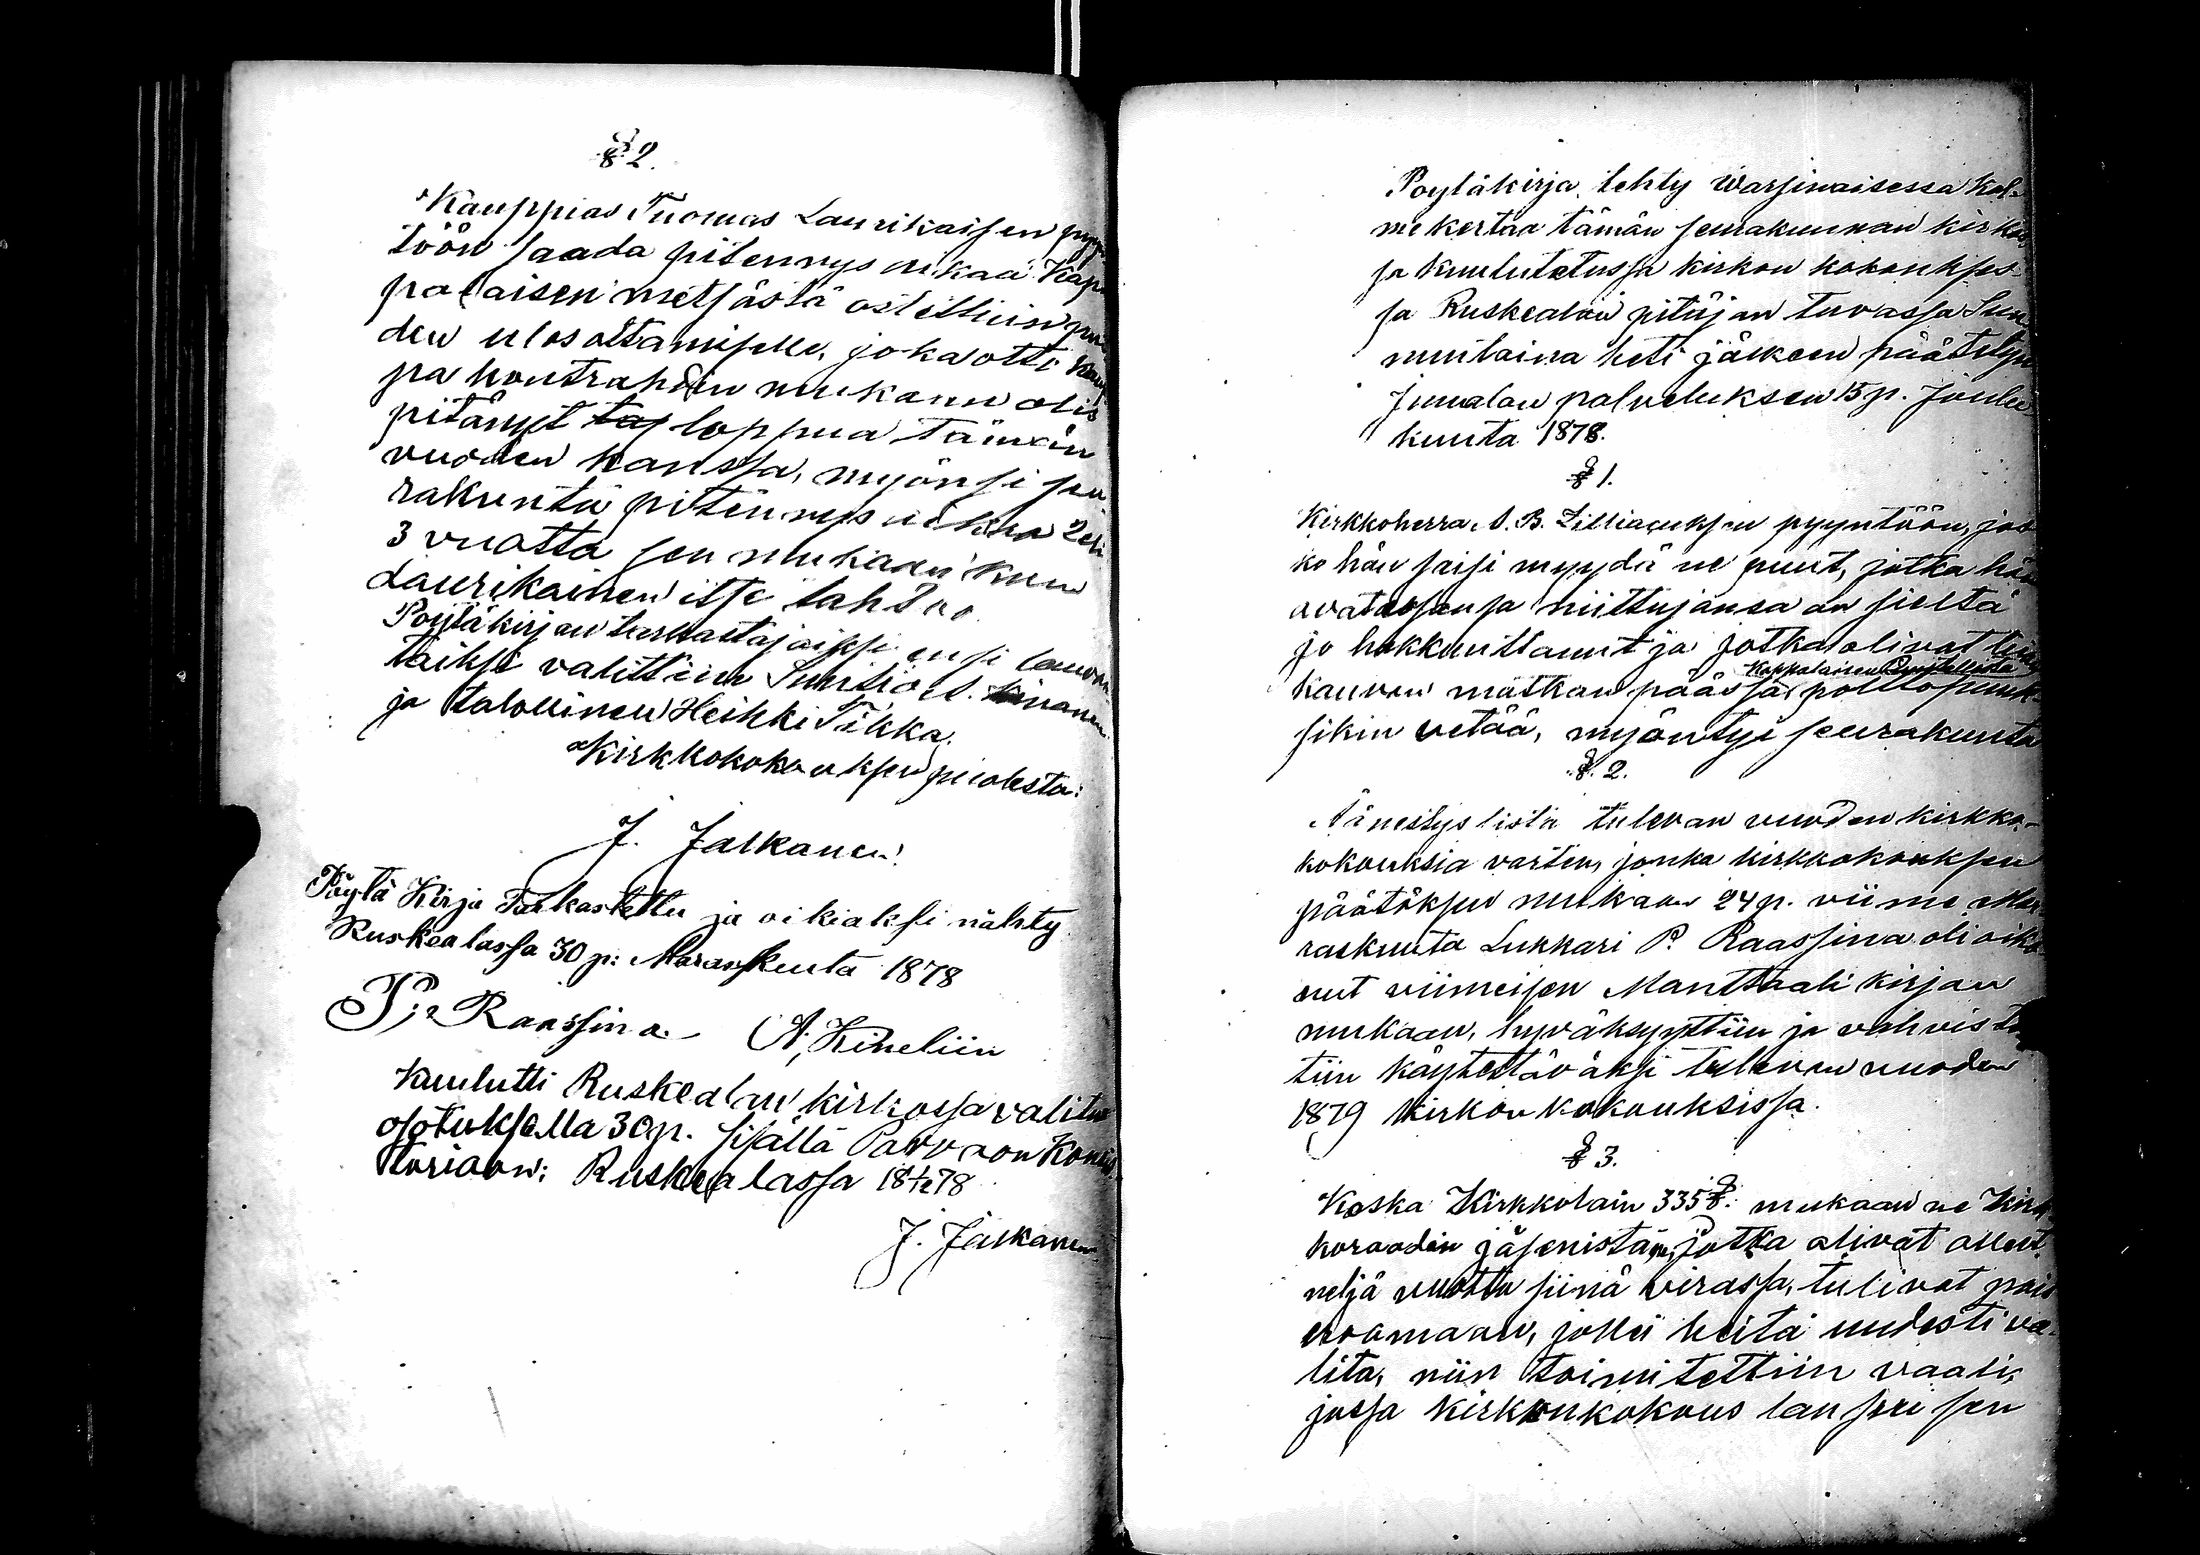 § 2.
Kauppias Tuomas Laurikaisen pyyn
töön saada pitennys aikaa Kap
palaisen metsästä ostettuin puu
den ulosottamiselle, joka otto kaup
pa kontrahdin mukaan olis
pitänyt loppua tämän
vuoden kanssa, myönsi seu
rakunta pitennys aikaa 2 eli
3 vuotta sen mukaan kuin
Laurikainen itse tahtoo.
Pöytäkirjan tarkastajaiksi ensi lauvan
taiksi valittiin Suntio A.
ja talollinen Heikki Tikka.
Kirkkokokouksen puolesta:
J. Jalkanen.
Pöytä Kirja Tarkastettu ja oikiaksi nähty
Ruskealassa 30 p: Marraskuuta 1878
P: Raassina A. Hineliin
Kuulutti Ruskealan kirkossa valitus
osotuksella 30 p. sisällä Porvoon Konsis
torioon: Ruskealassa 18 1/12 78
J. Jalkanen
Poytäkirja, tehty Warsinaisessa kol-
me kertaa tämän seurakunnan kirkos
sa kuulutetussa kirkon kokoukses-
sa Ruskealan pitäjän tuvassa Sun
nuntaina heti jälkeen päätetyn
Jumalan palveluksen 15 p. Joulu
kuuta 1878.
§ 1.
Kirkkoherra A. B. Zilliacuksen pyyntöön, jos
ko hän saisi myydä ne puut, jotka hän
avataessansa niittujansa on sieltä
jo hakkuuttanut ja jotka olivat liian
Kappalaisen Puustellista
kauvan matkan päässä polttopuuk-
sikin vetää, myöntyi seurakunta
§. 2.
Äänestys lista tulevan vuoden kirkko-
kokouksia varten, jonka kirkkokouksen
päätöksen mukaan 24 p. viime Mar
raskuuta Lukkari P. Raassina oli oiko
nut viimeisen Manttaali kirjan
mukaan, hyväksyttiin ja vahvistet
tiin käytettäväksi tulevan vuoden
1879 kirkon kokouksissa.
§ 3.
Koska Kirkkolain 335 §: mukaan ne Kirk
koraadin jäsenistä, jotka olivat olleet
neljä vuotta siinä virassa, tulivat pois
eroamaan, jollei heitä uudesti va-
lita, niin toimitettiin vaali,
jossa kirkonkokous lausui sen